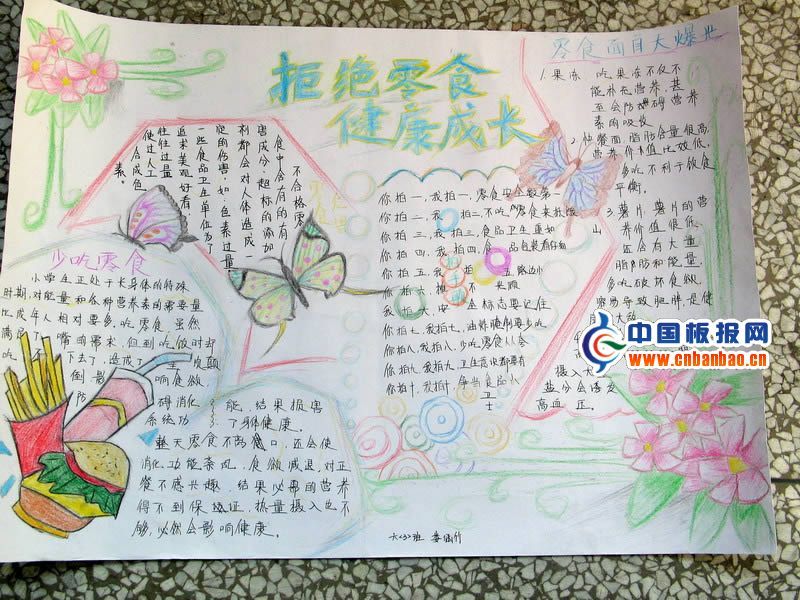 拒绝零食
健康成长
零食面目大爆光
1.果冻 吃果冻不仅不
能补充营养,甚
至会防碍营养
素的吸收
2.快餐面,脂肪含量很高,
营养价值比较低,
多吃不利于饮食
平衡。
3.薯片,薯片的营
养价值很低,
还会有大量
脂肪和能量,
多吃破坏食欲,
容易导致肥胖,是健
摄入
盐分会诱发
高血
不合格零
食中含有的有
害成分,超标的添加
剂都会对人体造成一
定的伤害,如:色素过量
一些食品卫生单位为了
追求美观好看,
往往过量
使过人工
合成色
素。
少吃零食
小学生正处于长身体的特殊
时期,对能量和各种营养素的需要量
比成年人相对要多,吃零食虽然
满足了 嘴的需求,但到吃饭时却
吃 下去了,造成了
倒 影 响食欲,
防 碍消化
系统功 能,结果损害
了身体健康。
整天零食不离口,还会使
消化功能紊乱,食欲减退,对正
餐不感兴趣,结果必需的营养
得不到保证,热量摄入也不
够,必然会影响健康。
你拍一,我拍一,零食安全数第一
你拍二,我拍二,不吃
你拍三,我拍三,食品卫生重如
山
你拍四,我拍四,食品包装看仔细
你拍五,我拍五,
你拍六,
我拍六,安全标志要记住
你拍七,我拍七,油炸腌制要少吃
你拍八,我拍八,少吃零食人人夸
你拍九,我拍九,卫生意识都要有
你拍十,我拍十,争当食品小卫
士
六(3)班
中国板报网
www.cnbanbao.cn